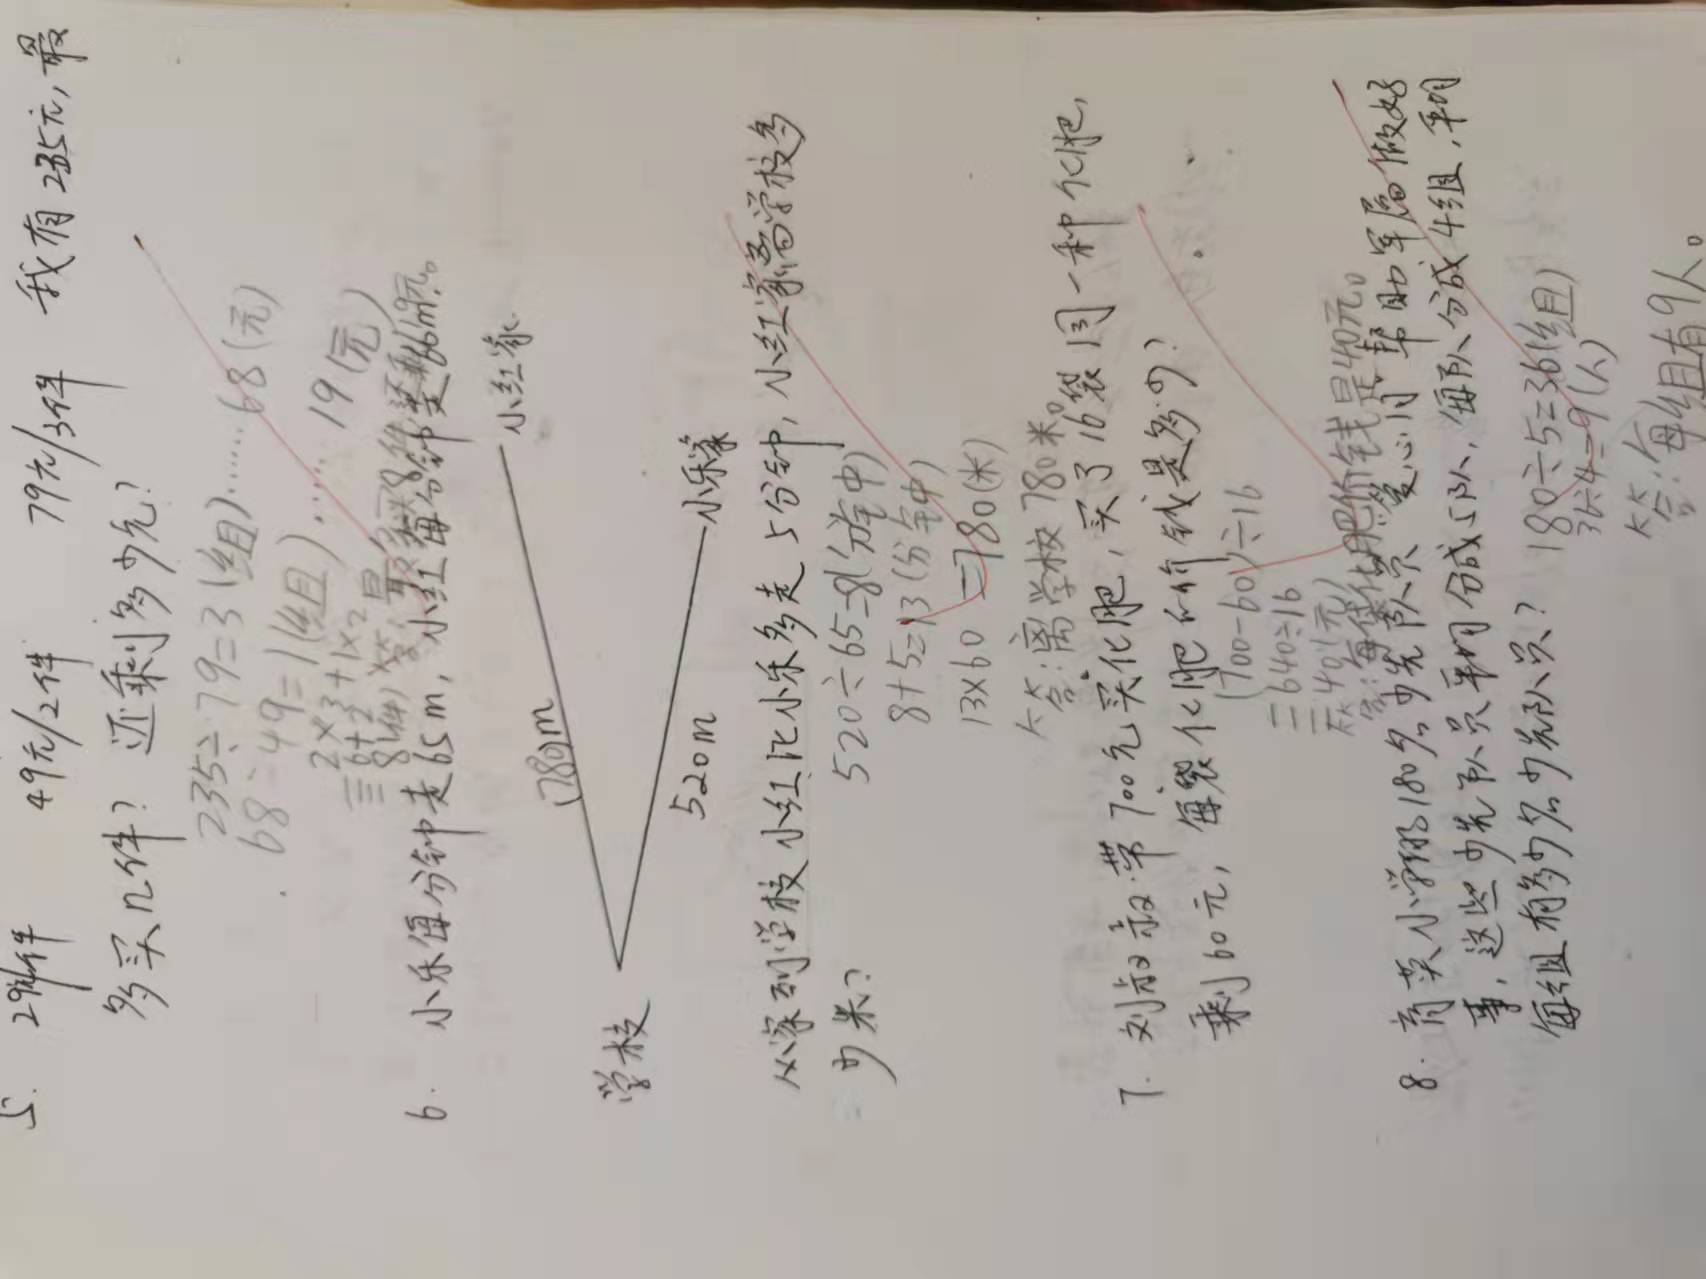 5. 29元/件 49元/2件 79元/3件 我有235元,最
多买几件? 还剩多少元?
235÷79=3(组)……68(元)
68÷49=1(组)……19(元)
2×3+1×2
=6+2
=8(件)
6. 小乐每分钟走65m,小红每分钟走60m。
小红家
(780)m
学校
520m
小乐家
从家到学校小红比小乐多走5分钟,小红家离学校多
少米?
520÷65=8(分钟)
8+5=13(分钟)
13×60=780(米)
答:离学校780米。
7. 刘叔叔带700元买化肥,买了16袋同一种化肥,
剩60元,每袋化肥的价钱是多少?
(700-60)÷16
=640÷16
=40(元)
答:每袋化肥价钱是40元。
8. 育英小学180名少先队员"爱心日"帮助军属做好
事,这些少先队员平均分成5队,每队分成4组,平均
每组有多少名少先队员?
180÷5=36(组)
36÷4=9(人)
答:每组有9人。